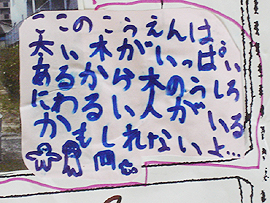 ここのこうえんは、
太い木がいっぱい
あるから木のうしろ
にわるい人がいる
かもしれないよ…